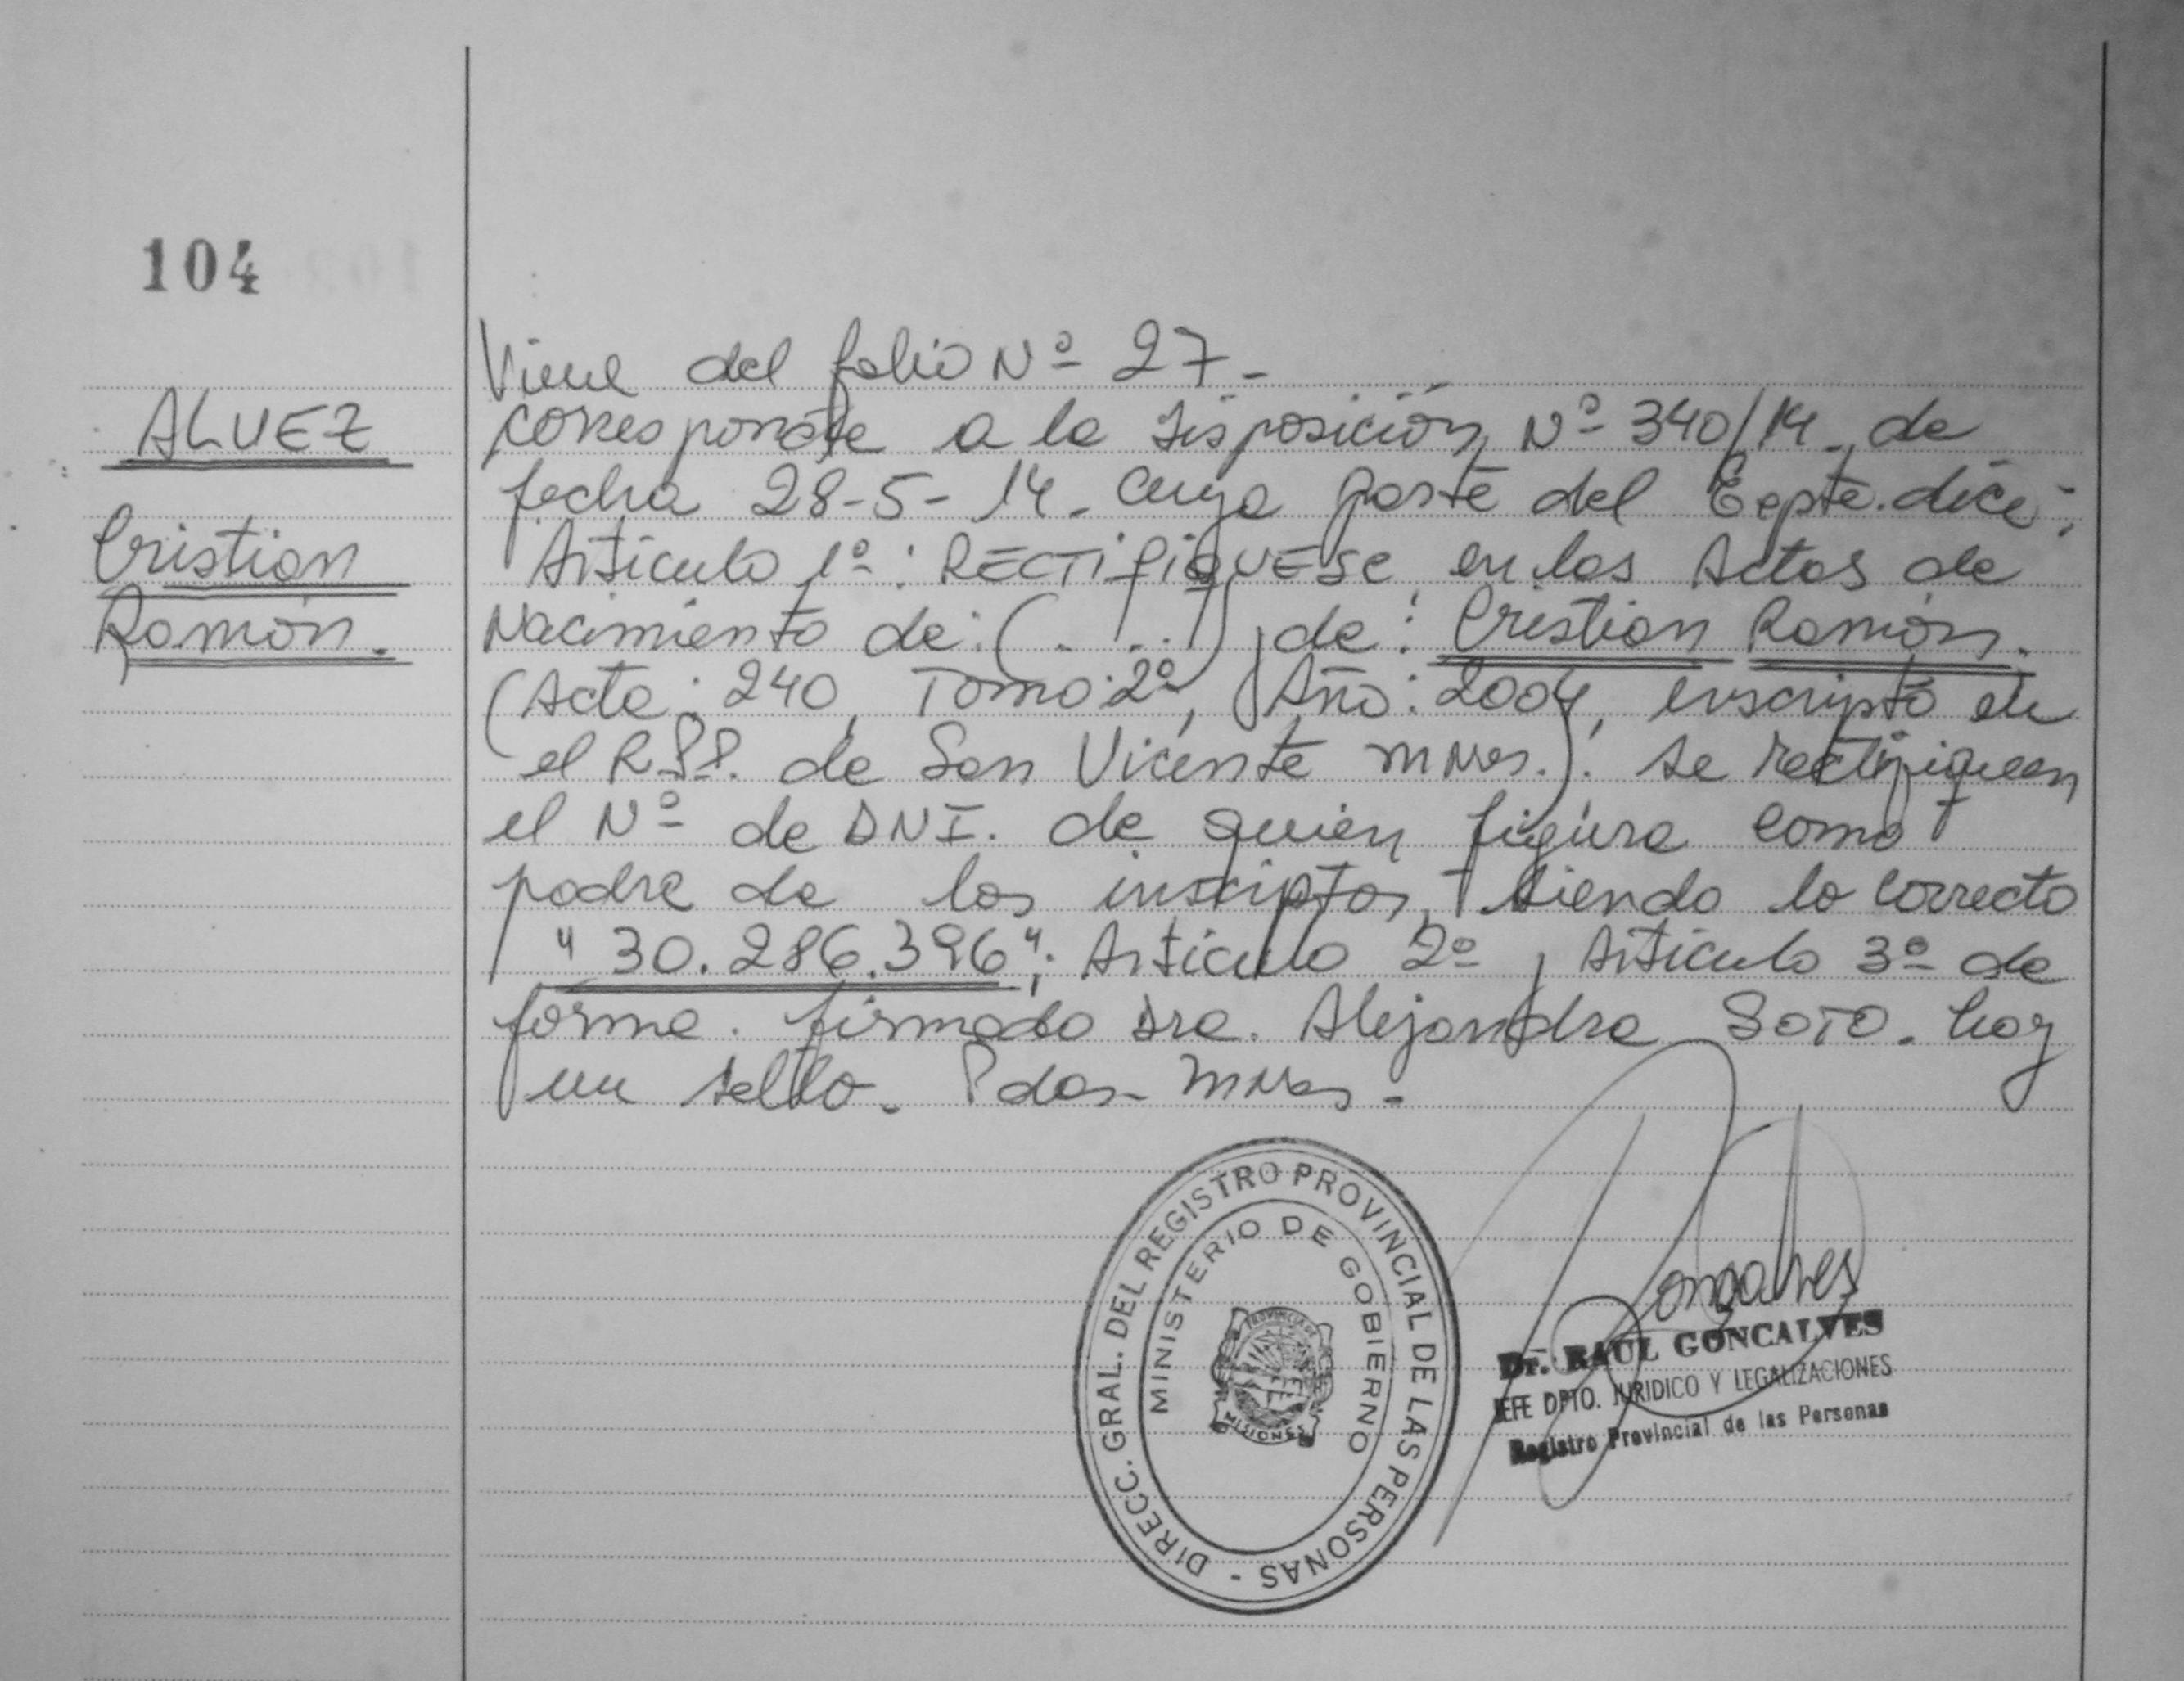 104
ALVEZ
Cristian
Ramón.
Viene del folio Nº 27-
corresponde a la Disposición Nº 340/14 de
fecha 28-5-14. cuya parte del Expte. dice:
Artículo 1º: RECTIFIQUESE en las Actas de
Nacimiento de: (. . .) , de: Cristian Ramón.
(Acta: 240, Tomo: 2º, Año: 2004, inscripto en
el RPP. de San Vicente Mnes.). se rectifiquen
el Nº de DNI. de quien figura como
padre de los inscriptos, siendo lo correcto
"30.286.396"; Artículo 2º, Artículo 3º de
forma. firmado Dra. Alejandra SOTO. hay
un sello. Pdas- Mnes-
DIRECC. GRAL. DEL REGISTRO PROVINCIAL DE LAS PERSONAS -
MINISTERIO DE GOBIERNO
PROVINCIA DE
MISIONES
Goncalves
Dr. RAUL GONCALVES
JEFE DPTO. JURIDICO Y LEGALIZACIONES
Registro Provincial de las Personas